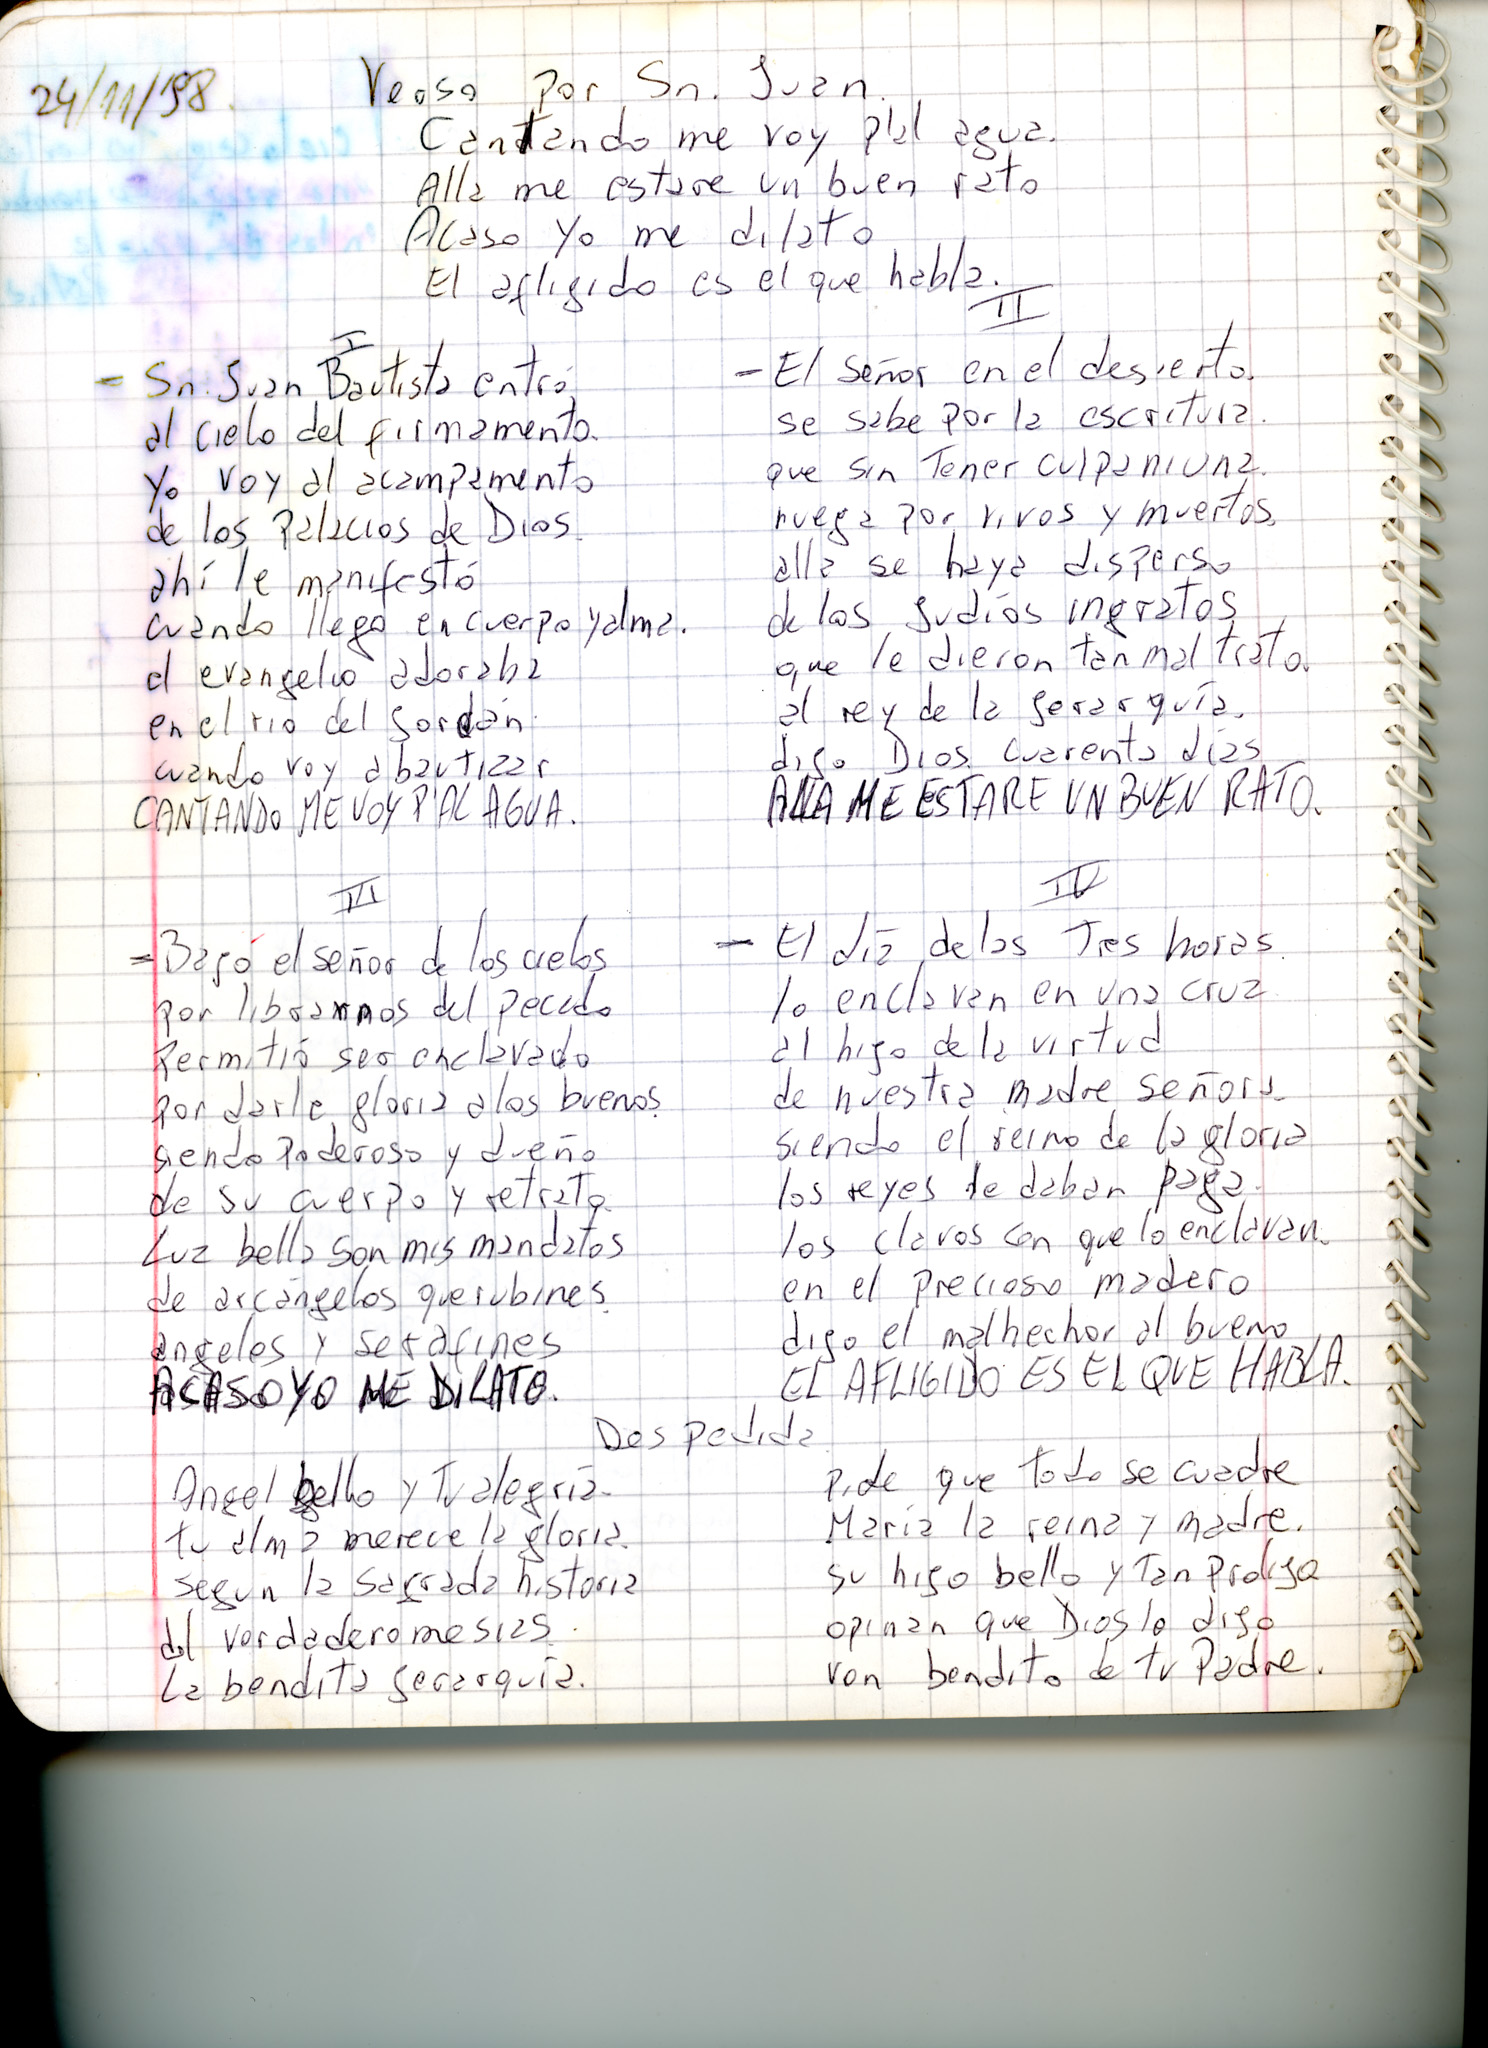 24/11/98.
Verso por Sn. Juan.
Cantando me voy p'al agua.
Alla me estare un buen rato
Acaso yo me dilato
El afligido es el que habla.
I
- Sn. Juan Bautista entró
al cielo del firmamento.
yo voy al acampamento
de los palacios de Dios.
ahí le manifestó
cuando llegó en cuerpo y alma.
el evangelio adoraba
en el rio del Jordán.
cuando voy a bautizar
CANTANDO ME VOY P'AL AGUA.
II
- El señor en el desierto.
se sabe por la escritura.
que sin tener culpa niuna.
ruega por vivos y muertos.
alla se haya disperso
de los Judíos ingratos
que le dieron tan mal trato.
al rey de la gerarquía.
digo Dios cuarenta días
ALLA ME ESTARE UN BUEN RATO.
III
- Bagó el señor de los cielos
por librarnos del pecado
Permitió ser enclavado
por darle gloria a los buenos.
siendo Poderoso y dueño
de su cuerpo y retrato.
Luz bella son mis mandatos
de arcángeles querubines.
angeles y serafines
ACASO YO ME DILATO.
IV
- El día de las Tres horas.
lo enclavan en una cruz
al higo de la virtud
de nuestra madre señora.
siendo el reino de la gloria
los reyes le daban paga.
los clavos con que lo enclavan.
en el precioso madero
digo el malhechor al bueno
EL AFLIGIDO ES EL QUE HABLA.
Despedida
Angel bello y Tu alegria.
tu alma merece la gloria.
segun la sagrada historia
del verdadero mesias.
La bendita gerarquía.
pide que todo se cuadre
María la reina y madre.
su higo bello y tan prodigo
opinan que Dios lo digo
ven bendito de tu Padre.